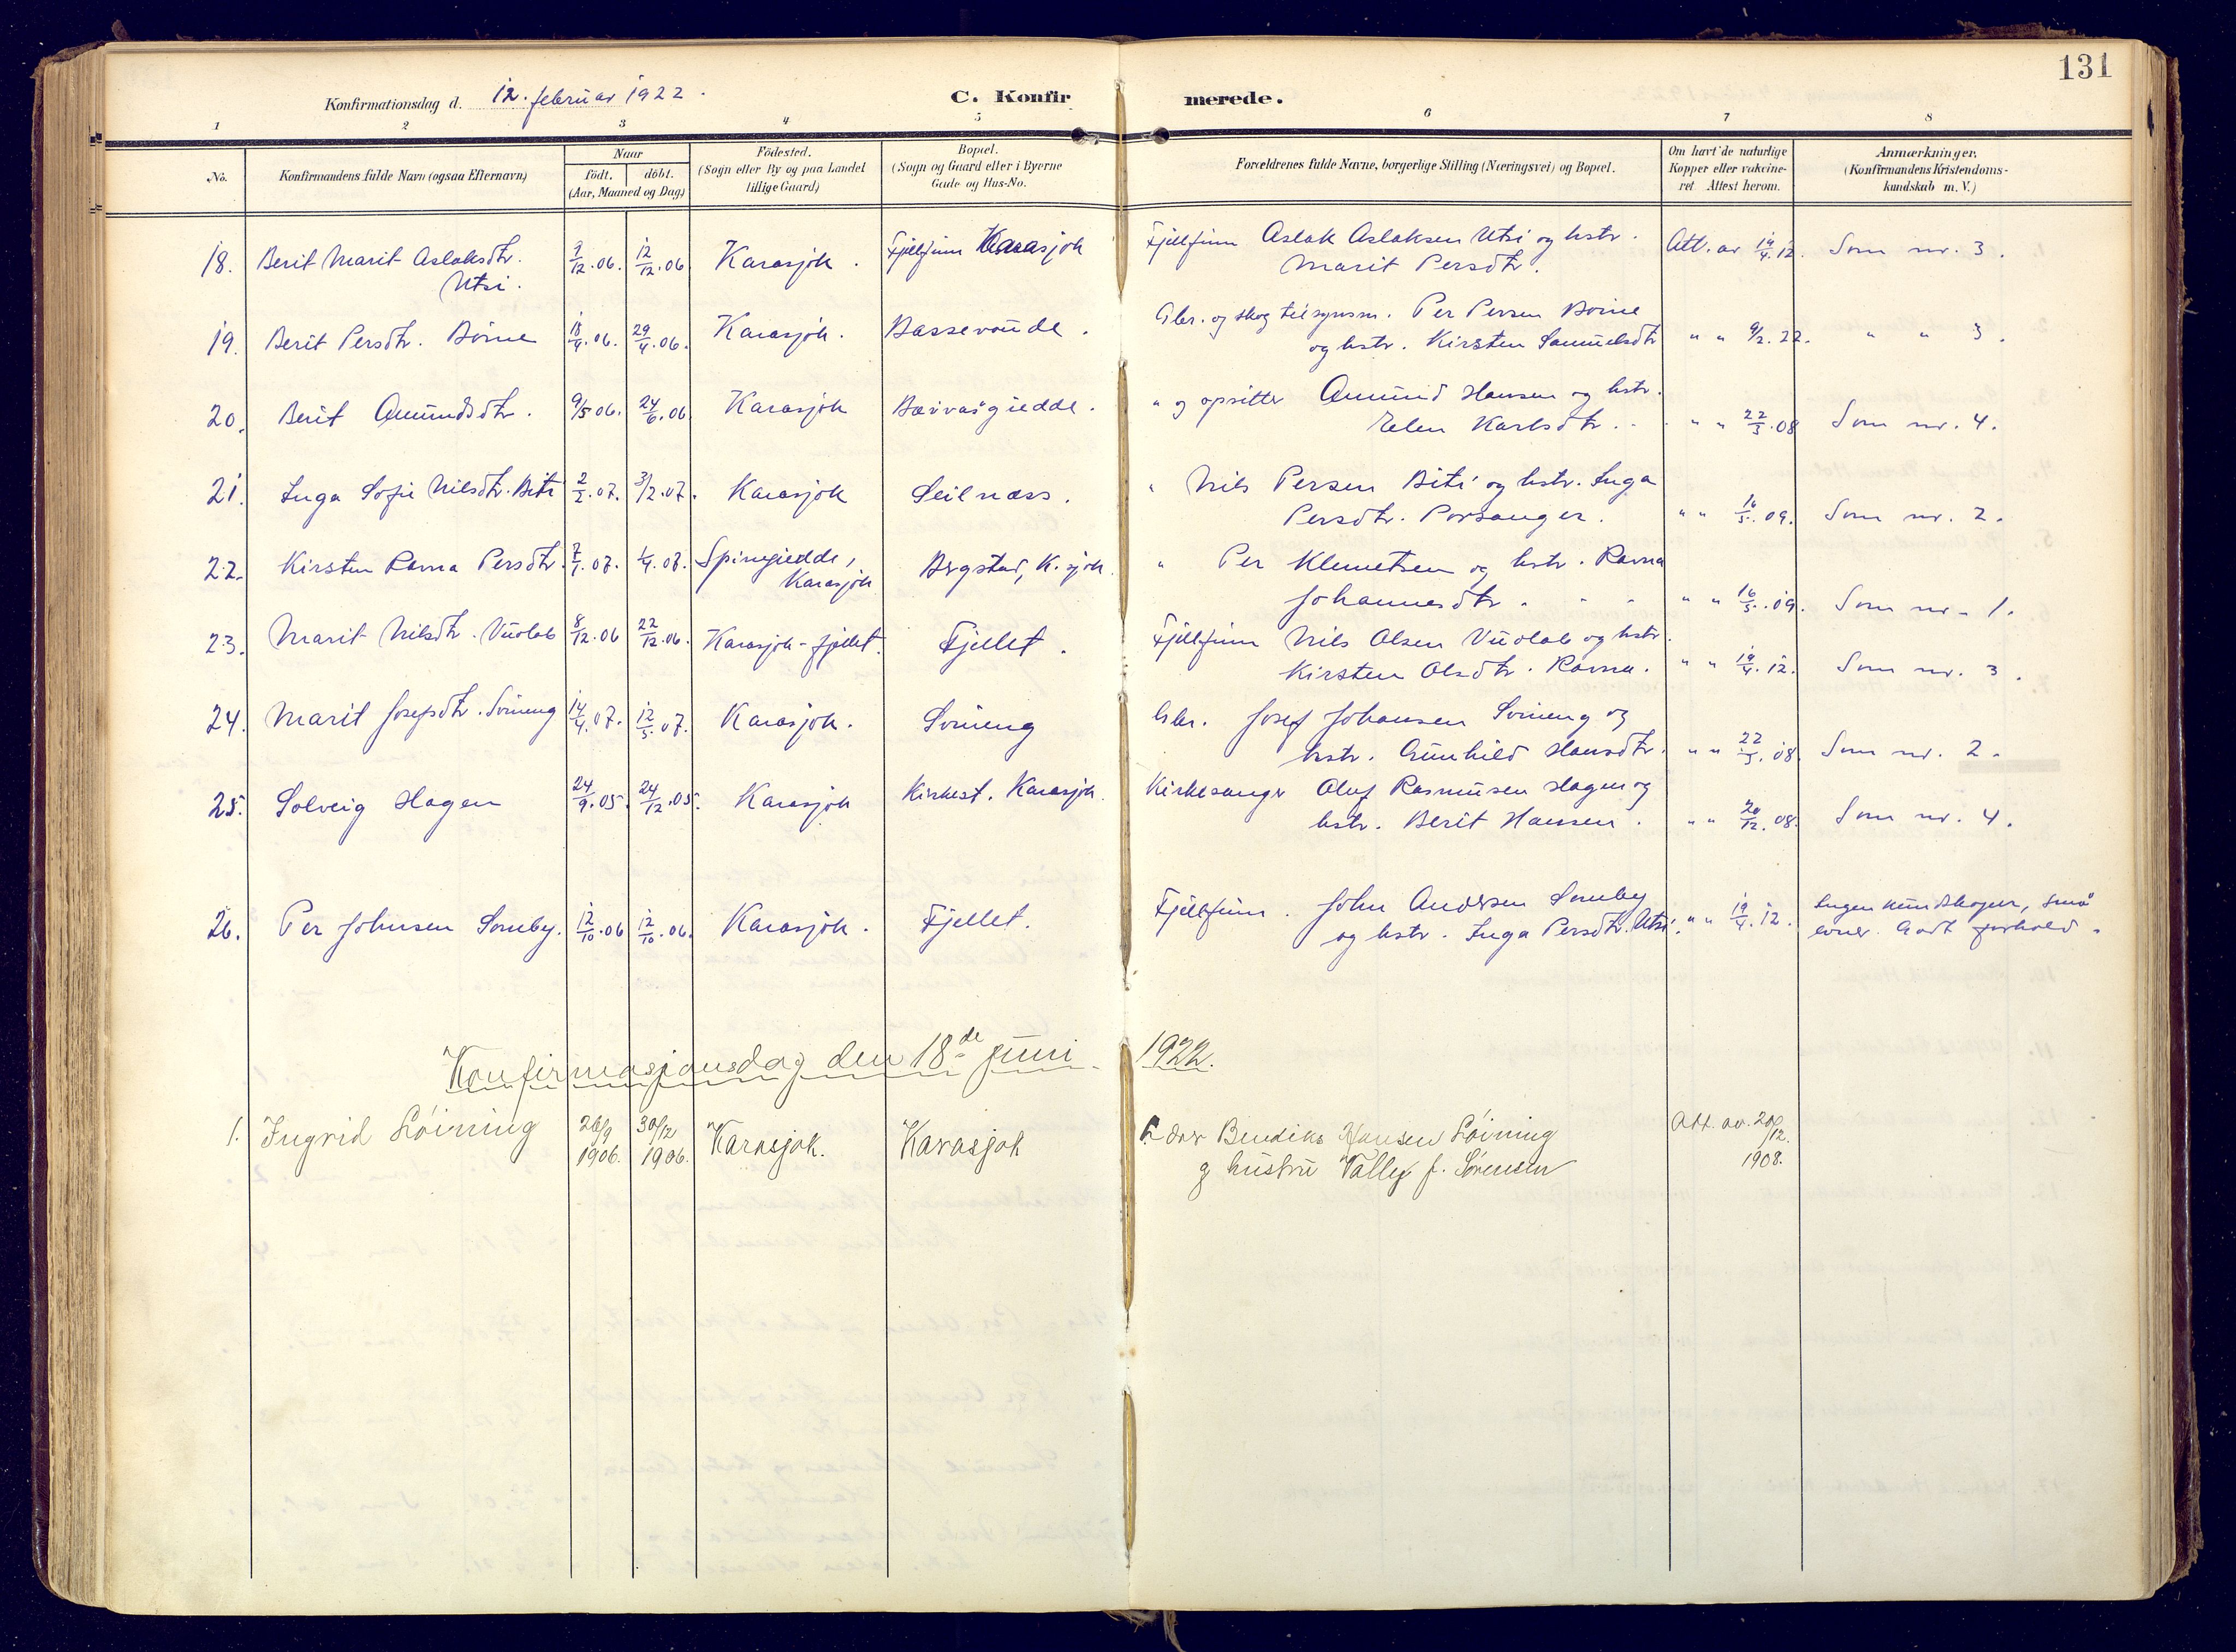 131
Konfirmationsdag d. 12. februar 1922. C. Konfirmerede.
1 2 3 4 5 6 7 8
No. Konfirmandens fulde Navn (ogsaa Efternavn) Naar født. døbt. (Aar, Maaned og Dag) Fødested. (Sogn eller By og paa Landet tillige Gaard) Bopæl. (Sogn og Gaard eller i Byerne Gade og Hus-No. Forældrenes fulde Navne, borgerlige Stilling (Næringsvei) og Bopæl. Om havt de naturlige Kopper eller vakcineret. Attest herom. Anmærkninger. (Konfirmandens Kristendomskundskab m. V.)
18. Berit Marit Aslaksdtr. Utsi. 9/12.06. 12/12.06 Karasjok. Fjellfinn Karasjok Fjellfinn Aslak Aslaksen Utsi og hstr. Marit Persdtr. Att. av 19/4.12. Som nr. 3.
19. Berit Persdtr. Boine 18/4.06. 29/4.06. Karasjok. Bassevoude. Gbr. og skog tilsynsm. Per Persen Boine og hstr. Kirsten Samuelsdtr " " 9/2.22. " " 3.
20. Berit Amundsdtr. 9/5 06. 24/6.06 Karasjok Bævvasgiedde. " og opsitter Amund Hansen og hstr. Elen Karlsdtr. " " 22/3.08 Som nr. 4.
21. Inga Sofie Nilsdtr. Biti 2/2.07. 3/2.07. Karasjok Seilnæss. " Nils Persen Biti og hstr. Inga Persdtr. Porsanger. " " 16/5.09. Som nr. 2.
22. Kirsten Ravna Persdtr. 7/1.07. 1/4.07. Spinegiedde, Karasjok Bergstad, K.sjok. " Per Klemetsen og hstr. Ravna Johannesdtr. " " 16/5.09. Som nr. 1.
23. Marit Nilsdtr. Vuolab 8/12.06 22/12.06. Karasjok-fjellet. Fjellet. Fjellfinn Nils Olsen Vuolab og hstr. Kirsten Olsdtr. Ravna. " " 19/4.12. Som nr. 3.
24. Marit Josefsdtr. Svineng 14/4.07. 12/5.07. Karasjok. Svineng Gbr. Josef Johansen Svineng og hstr. Gunhild Hansdtr. " " 22/3.08. Som nr. 2.
25. Solveig Hagen 24/9.05. 24/12.05. Karasjok Kirkest. Karasjok. Kirkesanger Oluf Rasmusen Hagen og hstr. Berit Hansen. " " 20/12.08. Som nr. 4.
26. Per Johnsen Somby. 12/10.06 12/10.06. Karasjok. Fjellet. Fjellfinn. John Andersen Somby og hstr. Inga Persdtr. Utsi. " " 19/4.12. Ingen kundskaper, små evner. Godt forhold.
Konfirmasjonsdag den 18de juni 1922.
1. Ingrid Løining 26/9 1906. 30/12 1906. Karasjok. Karasjok Bendiks Hansen Løining og hustru Vally f. Sørensen Att. av. 20/12. 1908.